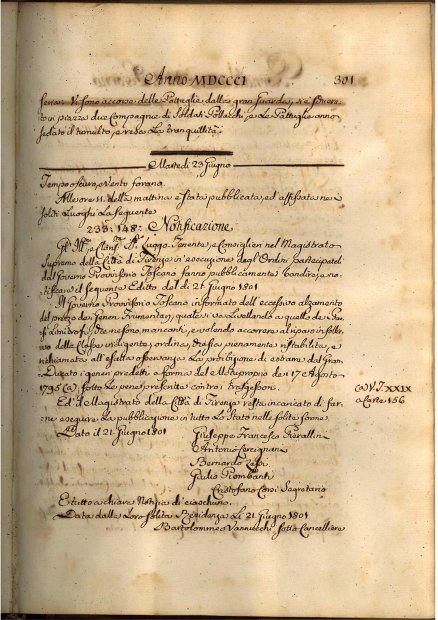 Anno MDCCCI 301
serrar. Vi sono accorse delle Pattuglie dalla gran Guardia, si è
to in piazza due Compagnie di Soldati Pollacchi, e le Pattuglie anno
sedato il tumulto, e reso la tranquillità.
Martedì 23 Giugno
Tempo oscuro, e Vento forano.
All'ore 11. della mattina è stata pubblicata, ed affissata ne i
soliti Luoghi la seguente
233: 148: Notificazione
Luogo Tenente, e Consiglieri nel Magistrato
Supremo della Città di Firenze in esecuzione degl'Ordini partecipati
dal Governo Provvisorio Toscano fanno pubblicamente bandire, e no-
tificare il seguente Editto del dì 21 Giugno 1801
Il Governo Provvisorio Toscano informato dell'eccessivo alzamento
del prezzo dei generi Frumentari, quale si va livellando a quello dei Pae-
si Limitrofi, che ne sono mancanti, e volendo accorrere al riparo in sollie-
vo della Classe indigente, ordina, che sia pienamente ristabilita, e
richiamata all'esatta osservanza la proibizione di estrarre dal Gran-
Ducato i generi predetti a forma del Motuproprio dei 17 Agosto
1795 (a) sotto le pene prescritte contro i trasgressori.
(a) V. T. XXIX
a Carte 156
Ed il Magistrato della Città di Firenze resta incaricato di far-
ne eseguire la pubblicazione in tutto lo Stato nelle solite forme.
Dato il 21 Giugno 1801
Giuseppe Francesco Pierallini
Antonio
Bernardo
Giulio Piombanti
Cristofano Corsi Segretario
E tutto a chiara Notizia di ciaschuno.
Data dalla Loro solita Residenza li 21. Giugno 1801
Bartolommeo Vannucchi sotto Cancelliere